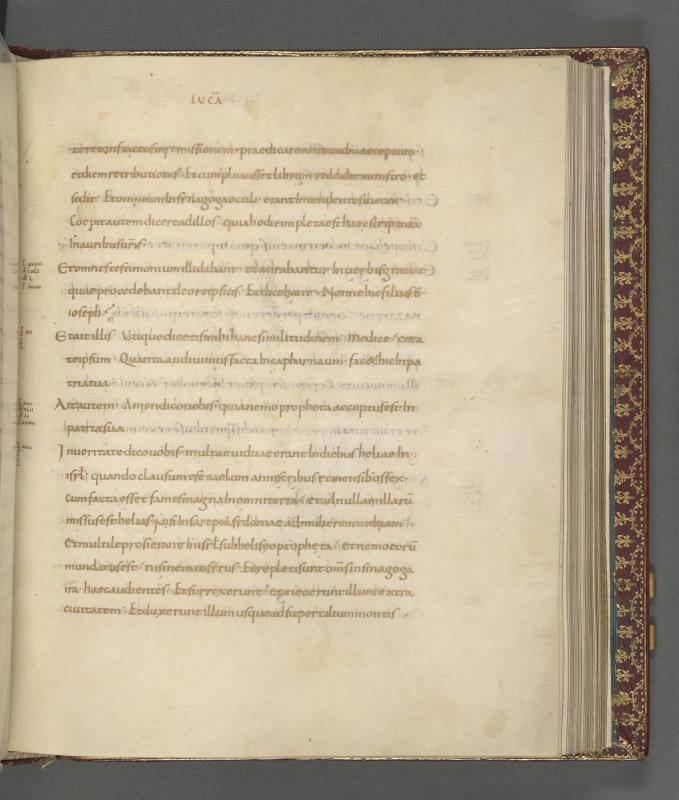 LUCĀ
dimittere confractos in remissionem · praedicare annum dñi acceptum
et diem retributionis · Et cum plicuisset librum reddidit ministro · et
sedit · Et omnium in sinagoga oculi erant intendentes in eum
Coepit autem dicere ad illos quia hodie impleta est haec scriptura
In auribus uris ·
Et omnis testimonium illi dabant · et mirabantur In uerbis gratiae
quae procedebant de ore ipsius · Et dicebant · Nonne hic filius ē
ioseph ·
Et ait illis Utique dicetis mihi hanc similitudinem medice cura
te ipsum Quanta audiuimus facta In capharnaum fac & hic In pa
tria tua
Ait autem Amen dico uobis quia nemo propheta acceptus est In
patria sua
In ueritate dico uobis multae uiduae erant In diebus heliae In
isrł · quando clausum est caelum annis tribus et mensibus sex
cum facta esset fames magna In omni terra · et ad nullam illarū
missus est helias nisi In sarepta sidoniae ad mulierem uiduam
Et multi leprosi erant In isrł sub heliseo propheta · et nemo eorū
mundatus est · nisi neman syrus Et repleti sunt oms In sinagoga
ira · haec audientes · Et surrexerunt · et eiecerunt illum extra
ciuitatem · Et duxerunt illum usque ad supercilium montis